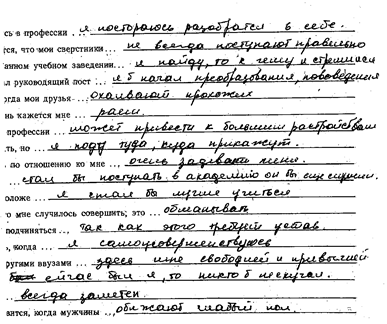 сь в профессии... я постораюсь разобратся в себе.
ся, что мои сверстники... не всегда поступают правильно
анном учебном заведении... я найду, то к чему и стремился
ал руководящий пост... я б начал преобразования,
огда мои друзья... охаивают прохожих
нь кажется мне... раем.
профессии... может привести к большим растройствам
ть, но... я пойду туда, куда прикажут.
по отношению ко мне... очень задевают меня.
стал бы поступать в академию он бы
оложе... я стал бы лучше учиться
о мне случилось совершить; это... обманывать
подчиняться... так как этого требует устав.
, когда... я самоусовершенствуюсь
ругими ввузами... здесь мне свободней и привычней
сейчас был я, то никто б не скучал.
... всегда заметен.
вится, когда мужчины... обижают слабый пол.